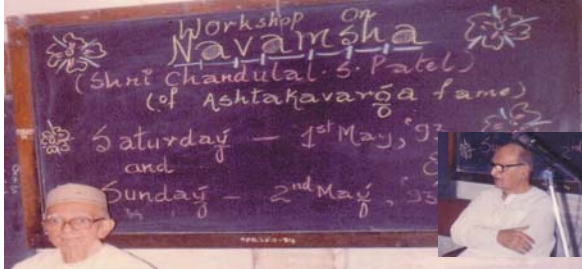 Workshop On
Navamsha
(Shri Chandulal. S. Patel)
(of Ashtakavarga fame)
Saturday — 1st May, '93
and
Sunday — 2nd May, '93